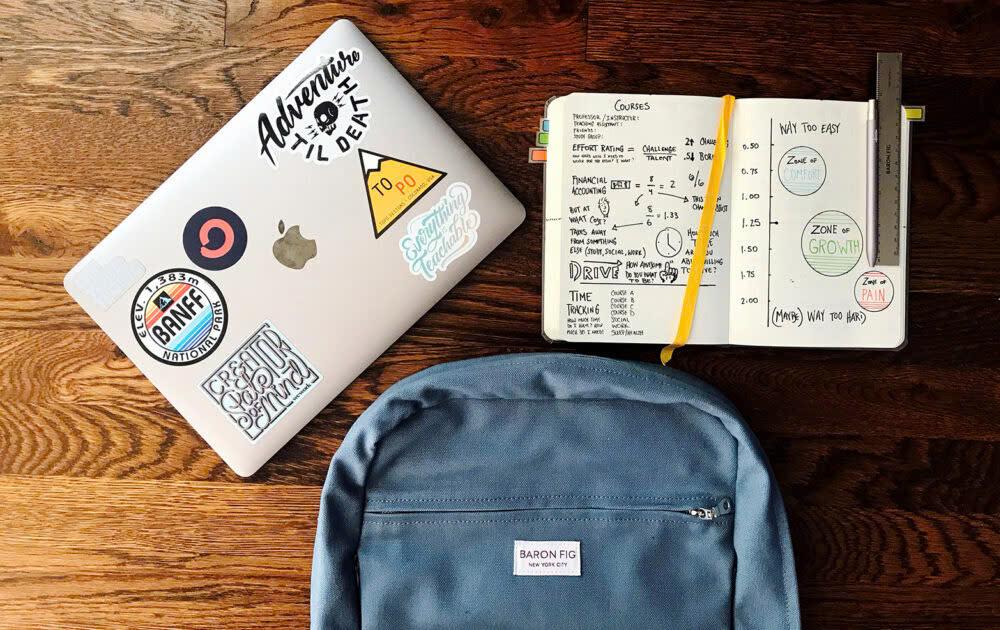 Adventure
TIL DEATH
TO PO
Everything
is Teachable
ELEV. 1,383m
BANFF
NATIONAL PARK
CREATOR
Palette
of Mind
COURSES
PROFESSOR/INSTRUCTOR:
TEACHING ASSISTANT:
FRIENDS:
STUDY GROUP:
EFFORT RATING = CHALLENGE
TALENT
FINANCIAL
ACCOUNTING = 8/4 = 2
6/6
BUT AT
WHAT COST?
8/6 = 1.33
TAKES AWAY
FROM SOMETHING
ELSE (STUDY, SOCIAL, WORK)
DRIVE HOW AWESOME
DO YOU WANT
TO BE?
TIME
TRACKING
HOW MUCH TIME
DO I HAVE? HOW
MUCH DO I NEED?
COURSE A
COURSE B
COURSE C
COURSE D
SOCIAL
WORK
SLEEP/HEALTH
WAY TOO EASY
0.50
0.75
1.00
1.25
1.50
1.75
2.00
ZONE OF
COMFORT
ZONE OF
GROWTH
ZONE OF
PAIN
(MAYBE) WAY TOO HARD
BARON FIG
BARON FIG
NEW YORK CITY